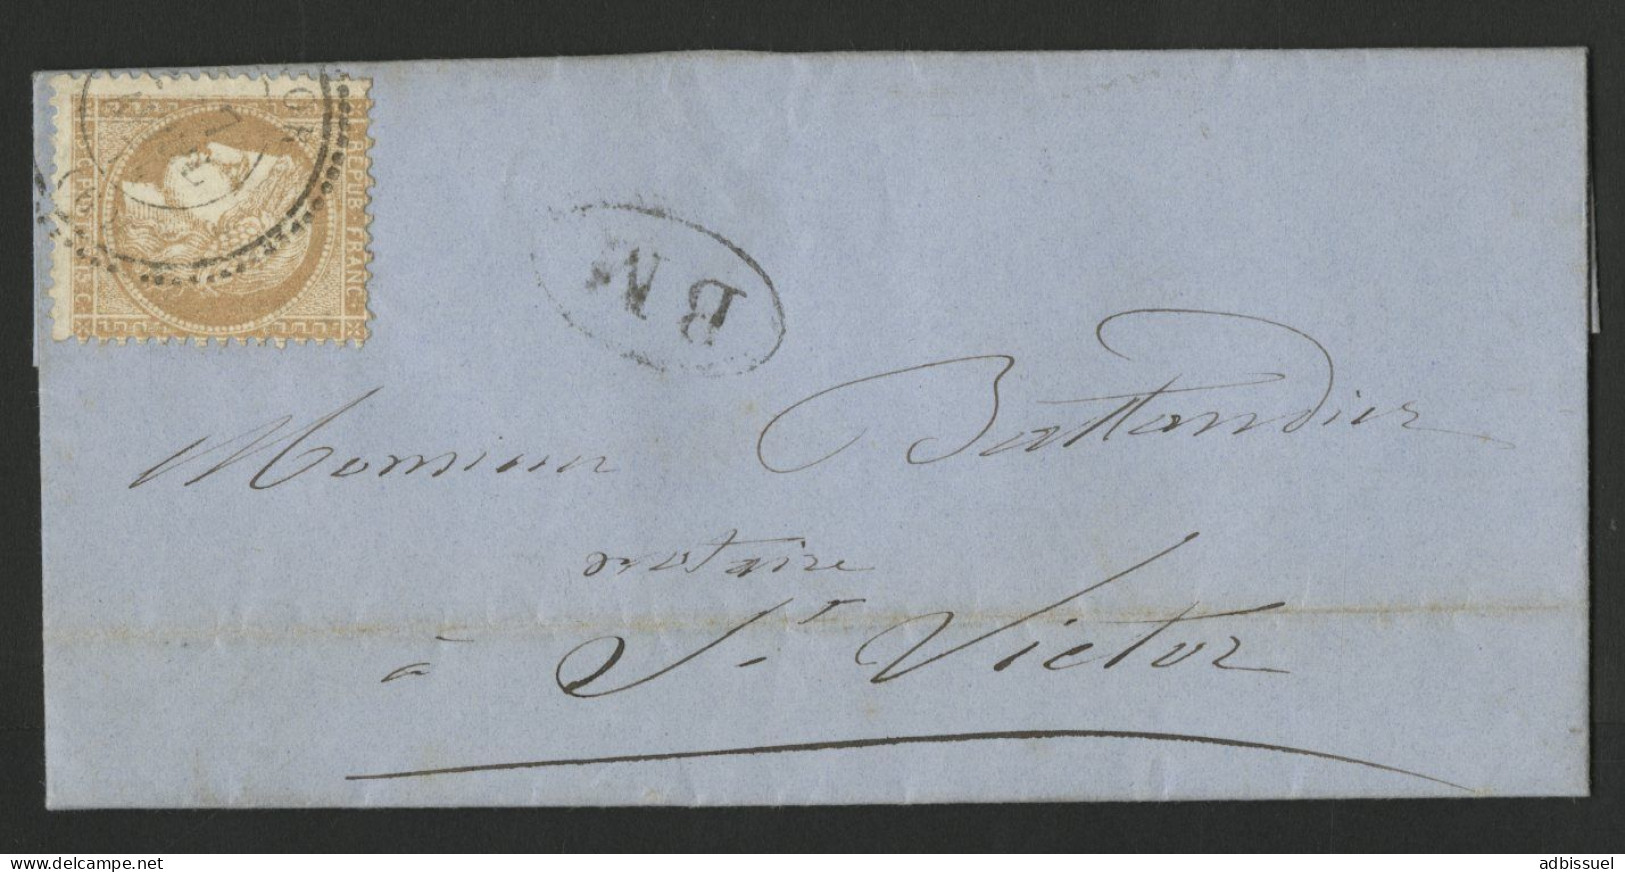 REPUB. FRANC.
15 C. POSTES 15 C.
B M
Monsieur Battandier
notaire
à St. Victor
www.delcampe.net
adbissuel